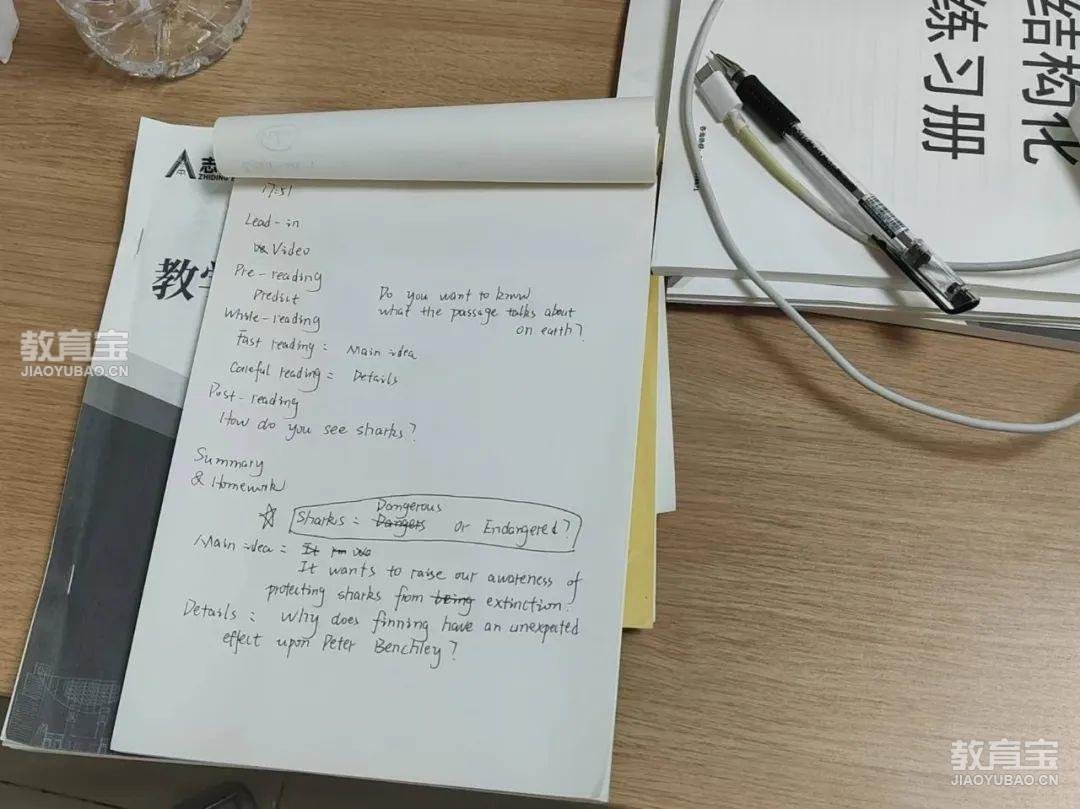 结构化
练习册
志
ZHIDING E
教学
17:51
Lead-in
Video
Pre-reading
Predict
Do you want to know
what the passage talks about
on earth?
While-reading
Fast reading: Main idea
Careful reading: Details
Post-reading
How do you see sharks?
Summary
& Homework
Dangerous
Sharks: Dangers or Endangered?
Main idea: It
It wants to raise our awareness of
protecting sharks from being extinction.
Details: Why does finning have an unexpected
effect upon Peter Benchley?
教育宝
JIAOYUBAO.CN
教育宝
JIAOYUBAO.CN